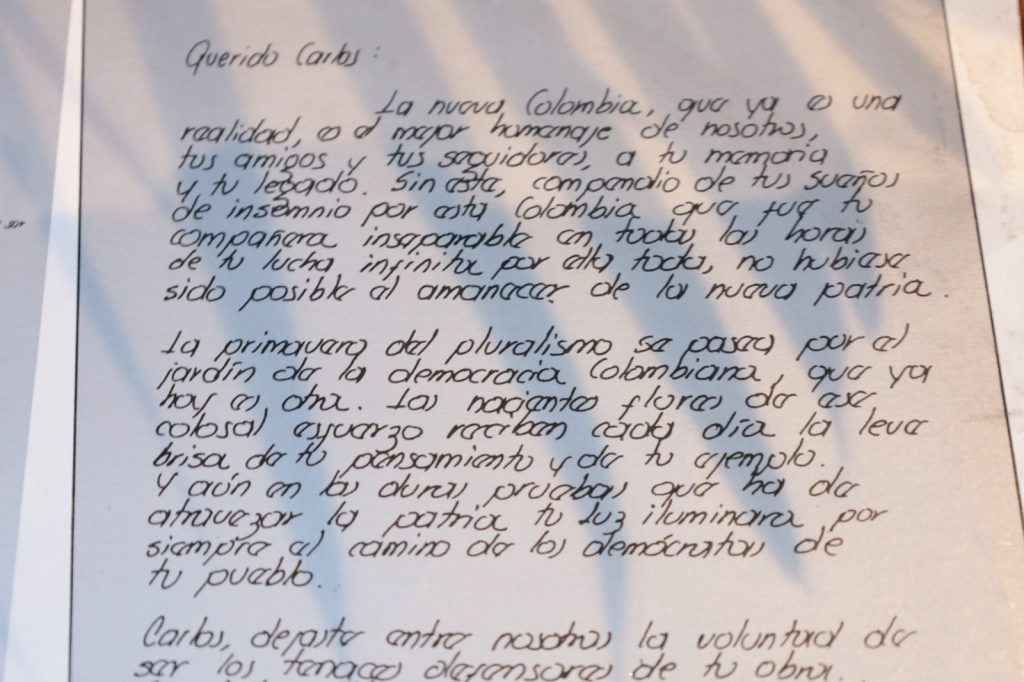 Querido Carlos:
La nueva Colombia, que ya es una
realidad, es el mejor homenaje de nosotros,
tus amigos y tus seguidores, a tu memoria
y tu legado. Sin este, compendio de tus sueños
de insomnio por esta Colombia que fue tu
compañera inseparable en todas las horas
de tu lucha infinita por ella toda, no hubiese
sido posible el amanecer de la nueva patria.
La primavera del pluralismo se pasea por el
jardín de la democracia Colombiana, que ya
hoy es otra. Las nacientes flores de ese
colosal esfuerzo reciben cada día la leve
brisa de tu pensamiento y de tu ejemplo.
Y aún en las duras pruebas que ha de
atravezar la patria tu luz iluminara por
siempre el camino de los demócratas de
tu pueblo.
Carlos, dejaste entre nosotros la voluntad de
ser los tenaces defensores de tu obra.